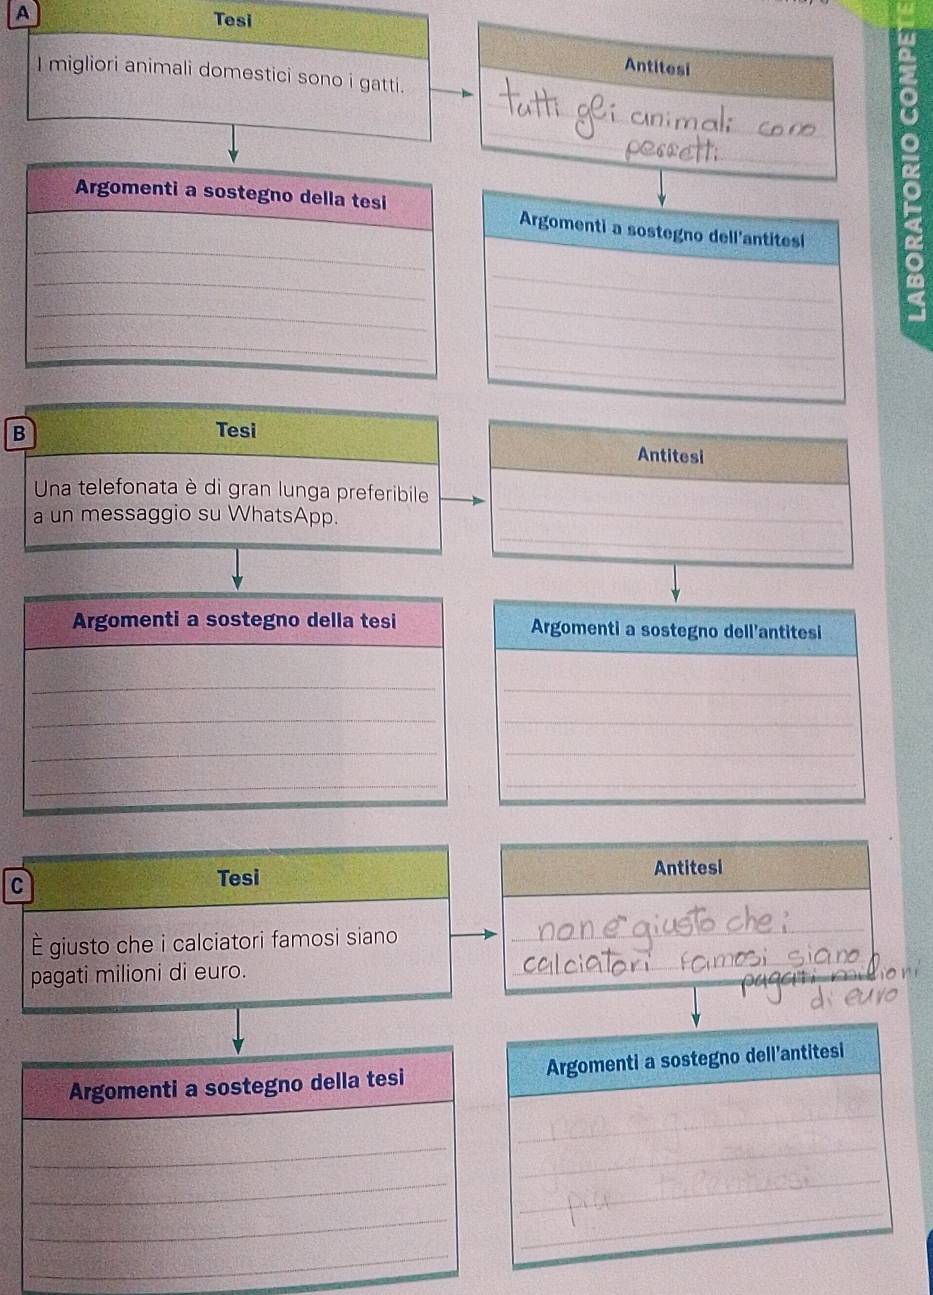 A
Tesi
I migliori animali domestici sono i gatti.
Antitesi
tutti gli animali sono
perfetti
Argomenti a sostegno della tesi
Argomenti a sostegno dell'antitesi
LABORATORIO COMPETE
B
Tesi
Una telefonata è di gran lunga preferibile
a un messaggio su WhatsApp.
Antitesi
Argomenti a sostegno della tesi
Argomenti a sostegno dell'antitesi
C
Tesi
È giusto che i calciatori famosi siano
pagati milioni di euro.
Antitesi
non è giusto che i
calciatori famosi siano
pagati milioni
di euro
Argomenti a sostegno della tesi
Argomenti a sostegno dell'antitesi
non
più talentuosi